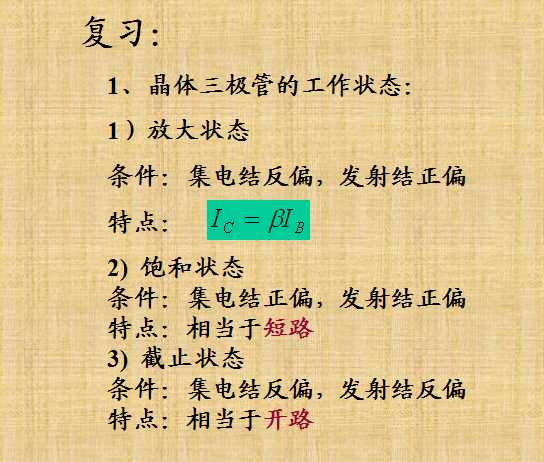 复习：
1、晶体三极管的工作状态：
1）放大状态
条件：集电结反偏，发射结正偏
特点： I_C = βI_B
2) 饱和状态
条件：集电结正偏，发射结正偏
特点：相当于短路
3) 截止状态
条件：集电结反偏，发射结反偏
特点：相当于开路